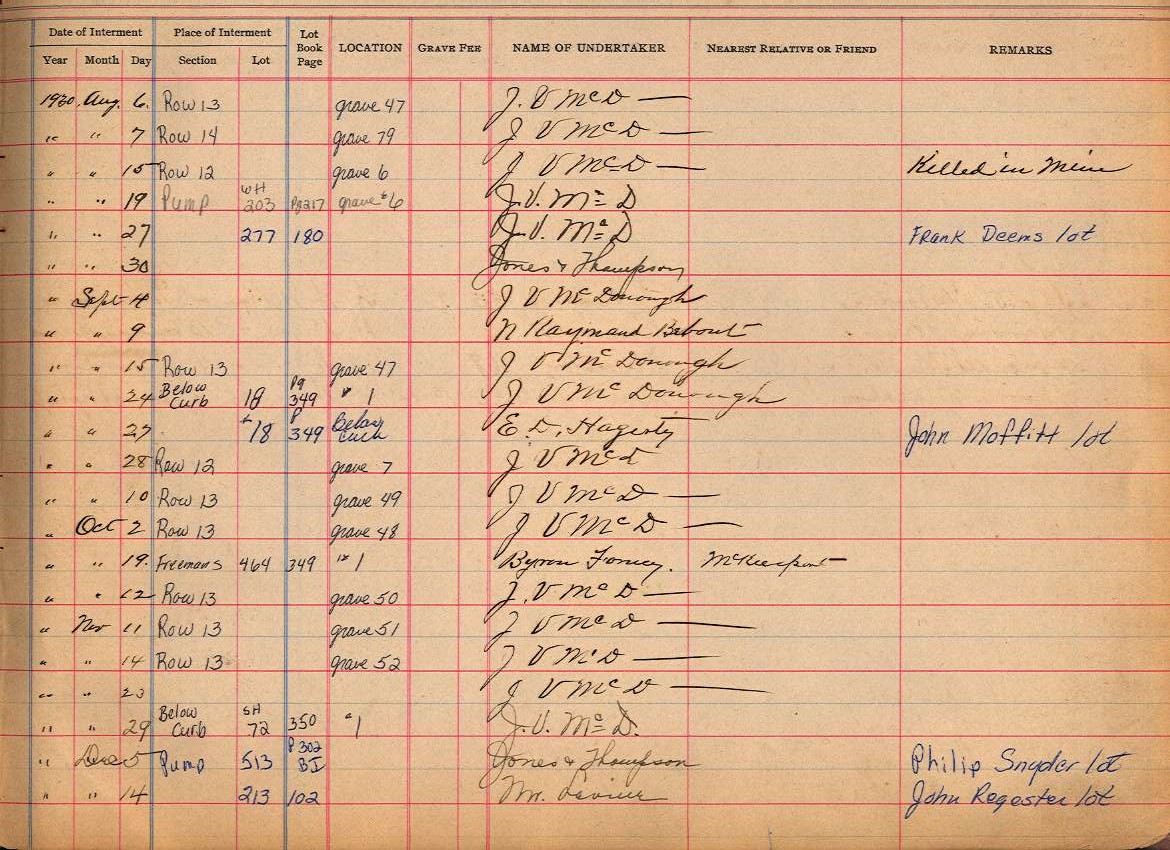 Date of Interment Place of Interment Lot Book Page LOCATION GRAVE FEE NAME OF UNDERTAKER NEAREST RELATIVE OR FRIEND REMARKS
Year Month Day Section Lot
1930 Aug. 6. Row 13 grave 47 J. V McD —
" " 7 Row 14 grave 79 J V McD —
" " 15 Row 12 grave 6 J V McD — Killed in Mine
" " 19 Pump WH 203 Pg 217 grave #6 J. V. Mc D
" " 27 277 180 J. V. Mc D Frank Deems lot
" " 30 Jones & Thompson
" Sept 4 J V McDonough
" " 9 N Raymond Bebout
" " 15 Row 13 grave 47 J V McDonough
" " 24 Below Curb 18 Pg 349 " 1 J V McDonough
" " 27 18 P 349 Below Curb E. D. Hagerty John Moffitt lot
" " 28 Row 12 grave 7 J V McD
" " 10 Row 13 grave 49 J V McD —
" Oct 2 Row 13 grave 48 J V McD —
" " 19. Freemans 464 349 1 Byron McKeesport
" " 12 Row 13 grave 50 J. V McD —
" Nov 11 Row 13 grave 51 J V McD —
" " 14 Row 13 grave 52 J V McD —
" " 23 J V McD —
" " 29 Below Curb SH 72 350 " 1 J. V. Mc D.
" Dec 5 Pump 513 P 302 BI Jones & Thompson Philip Snyder lot
" " 14 213 102 John Regester lot